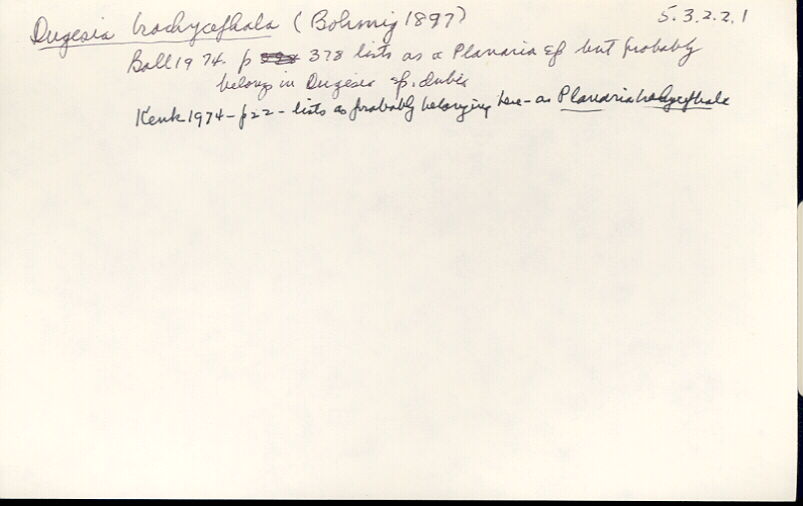 5.3.2.2.1
Dugesia brachycephala (Bohmig 1897)
Ball 1974. p 378 lists as a Planaria sp but probably
belongs in Dugesia sp. dubia
Kenk 1974 - p 22 - lists as probably belonging here - as Planaria brachycephala